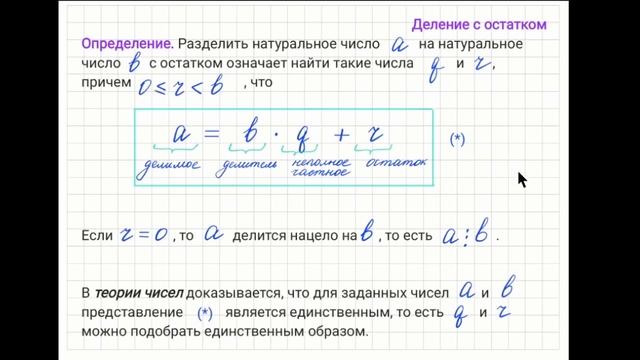 Деление с остатком
Определение. Разделить натуральное число a на натуральное
число b с остатком означает найти такие числа q и r,
причем 0 ≤ r < b , что
a = b · q + r (*)
делимое делитель неполное частное остаток
Если r = 0 , то a делится нацело на b , то есть a ⋮ b .
В теории чисел доказывается, что для заданных чисел a и b
представление (*) является единственным, то есть q и r
можно подобрать единственным образом.